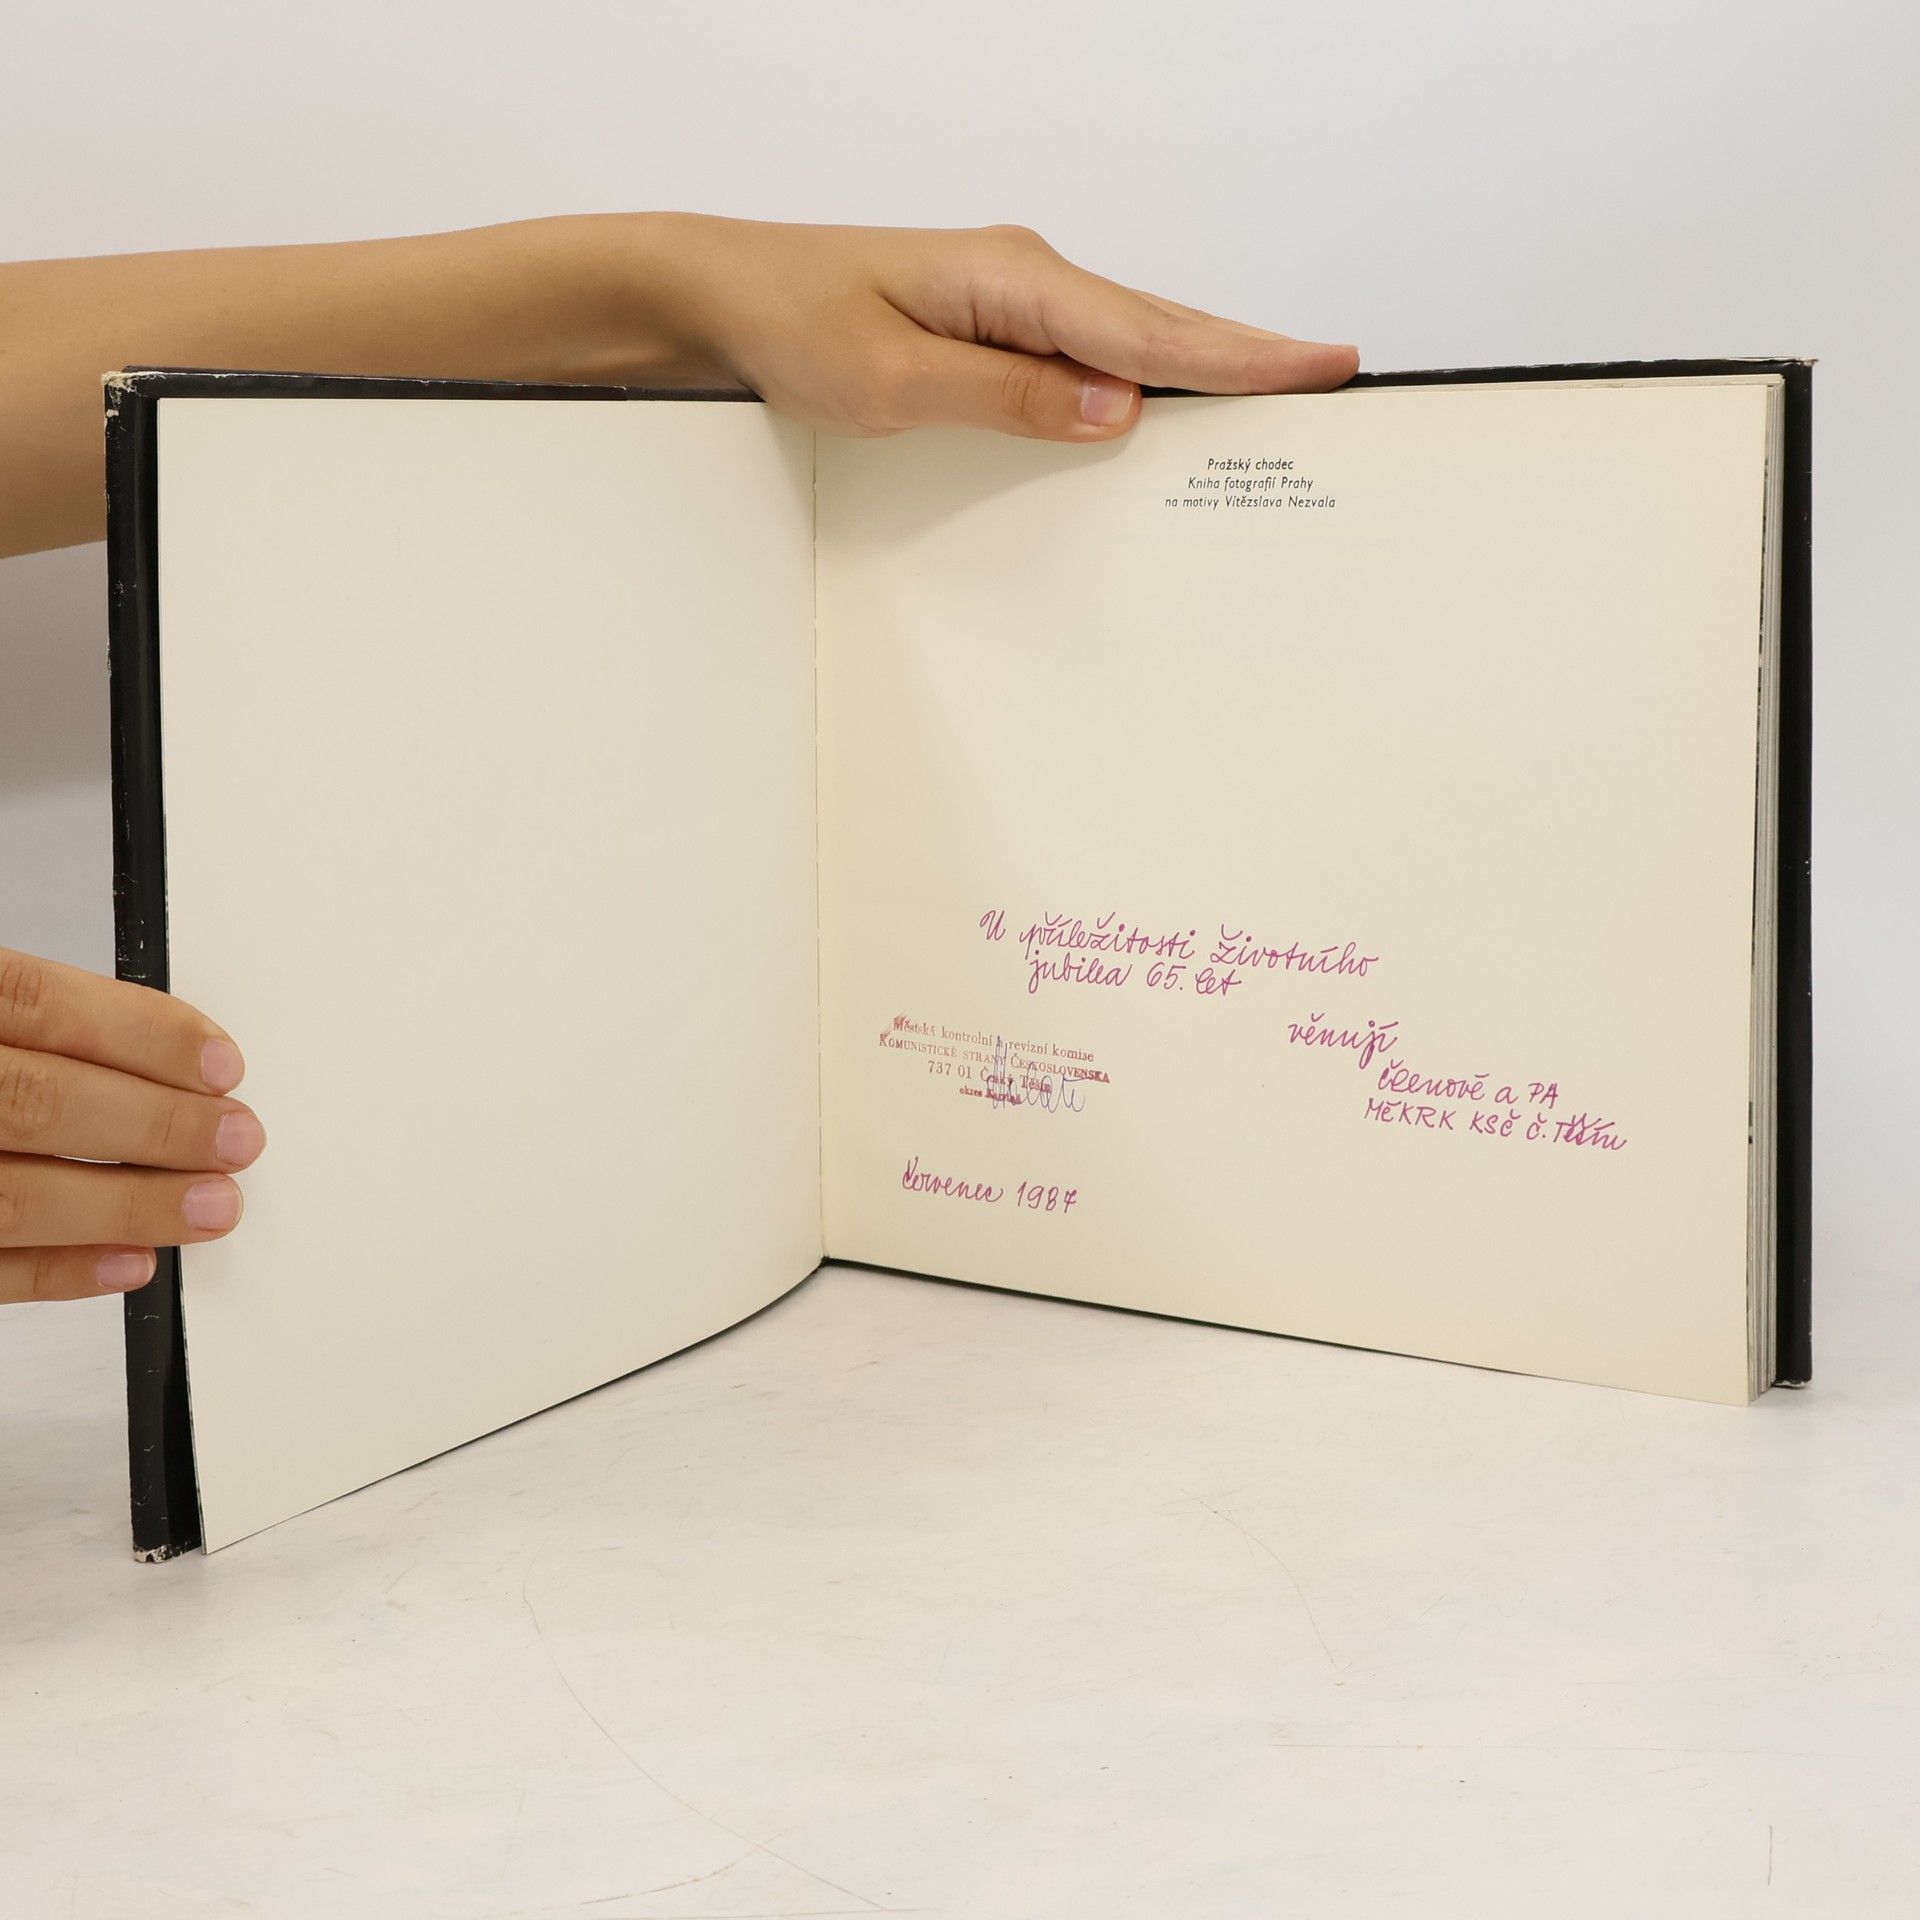 Pražský chodec
Kniha fotografií Prahy
na motivy Vítězslava Nezvala
U příležitosti životního
jubilea 65. let
věnují
členové a PA
MěKRK KSČ Č. Těšín
Městská kontrolní a revizní komise
KOMUNISTICKÉ STRANY ČESKOSLOVENSKA
737 01 Český Těšín
okres Karviná
červenec 1987